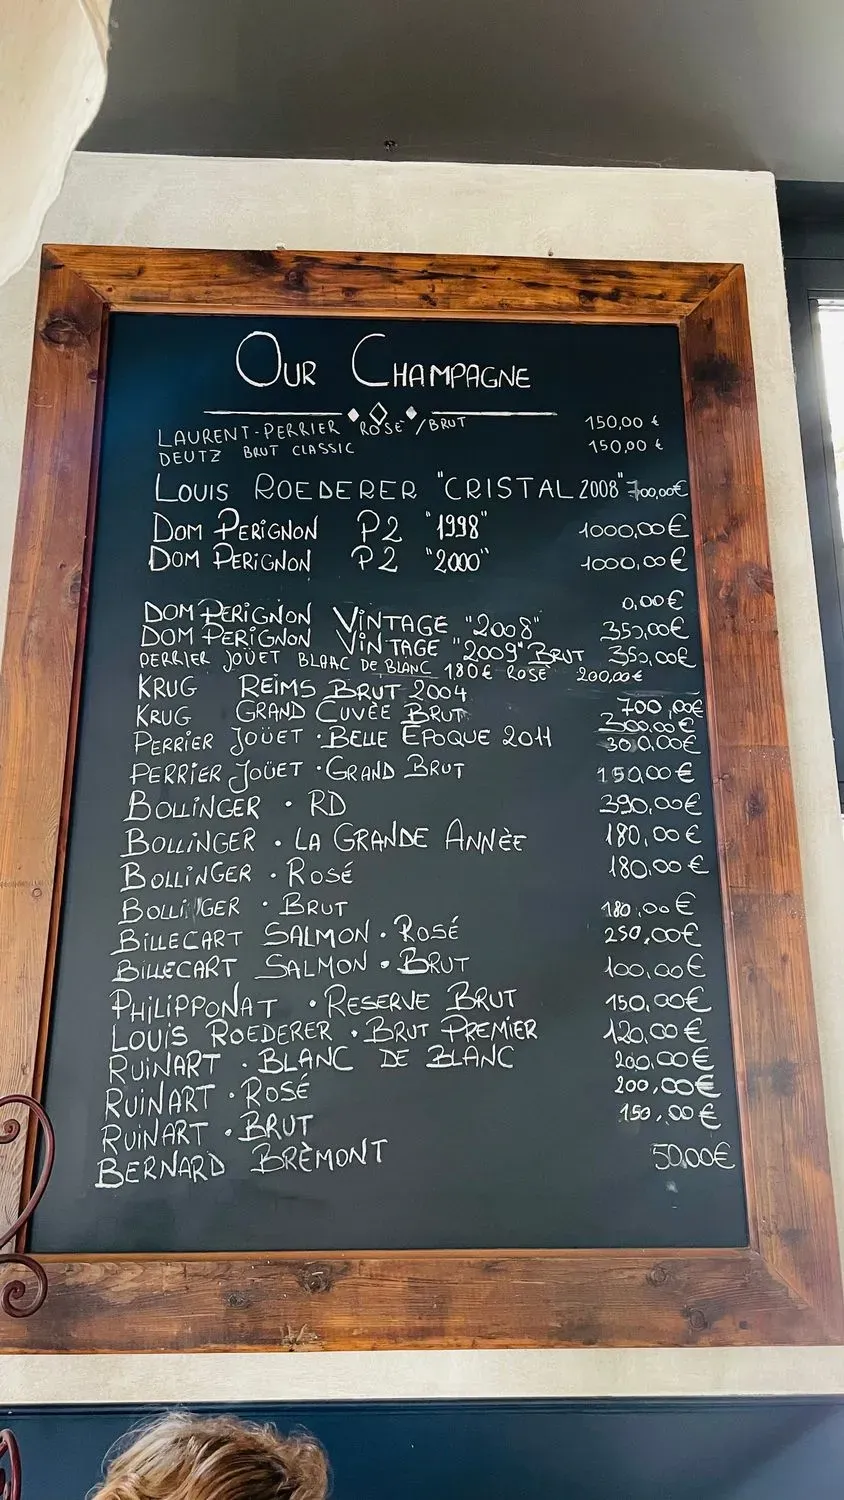 OUR CHAMPAGNE
LAURENT-PERRIER ROSÉ /BRUT 150,00 €
DEUTZ BRUT CLASSIC 150,00 €
LOUIS ROEDERER "CRISTAL 2008" 700,00€
DOM PERIGNON P2 "1998" 1000,00€
DOM PERIGNON P2 "2000" 1000,00€
0,00€
DOM PERIGNON VINTAGE "2008" 350,00€
DOM PERIGNON VINTAGE "2009" BRUT 350,00€
PERRIER JOÜET BLAAC DE BLANC 180€ ROSÉ 200,00€
KRUG REIMS BRUT 2004 700,00€
KRUG GRAND CUVÈE BRUT 300,00€
PERRIER JOÜET · BELLE EPOQUE 2011 300,00€
PERRIER JOÜET · GRAND BRUT 150,00€
BOLLINGER · RD 390,00€
BOLLINGER · LA GRANDE ANNÈE 180,00€
BOLLINGER · ROSÉ 180,00€
BOLLINGER · BRUT 180,00€
BILLECART SALMON · ROSÉ 250,00€
BILLECART SALMON · BRUT 100,00€
PHILIPPONAT · RESERVE BRUT 150,00€
LOUIS ROEDERER · BRUT PREMIER 120,00€
RUINART · BLANC DE BLANC 200,00€
RUINART · ROSÉ 200,00€
RUINART · BRUT 150,00€
BERNARD BRÈMONT 50,00€